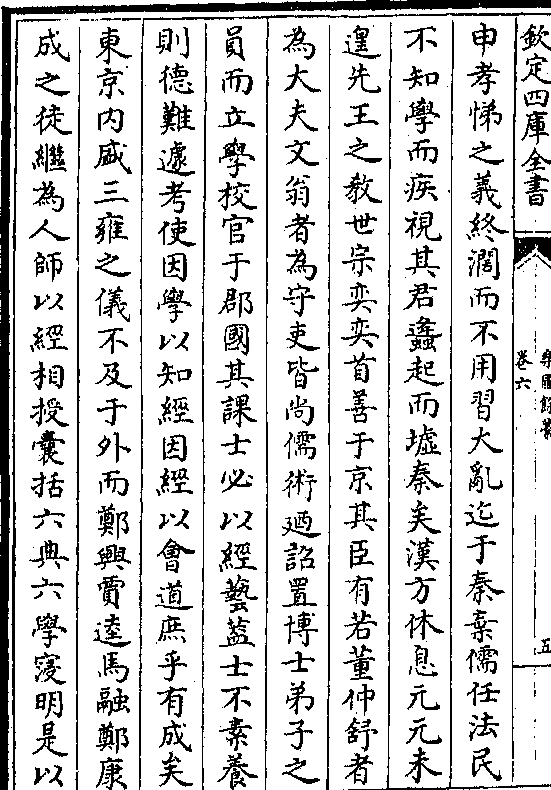 欽定四庫全書
卷六
五
申孝悌之義終濶而不用習大亂迄于秦棄儒任法民
不知學而疾視其君蠭起而墟秦矣漢方休息元元未
遑先王之教世宗奕奕首善于京其臣有若董仲舒者
為大夫文翁者為守吏皆尚儒術廼詔置博士弟子之
員而立學校官于郡國其課士必以經藝葢士不素養
則德難遽考使因學以知經因經以會道庶乎有成矣
東京内盛三雍之儀不及于外而鄭興賈逵馬融鄭康
成之徒繼為人師以經相授囊括六典六學寖明是以